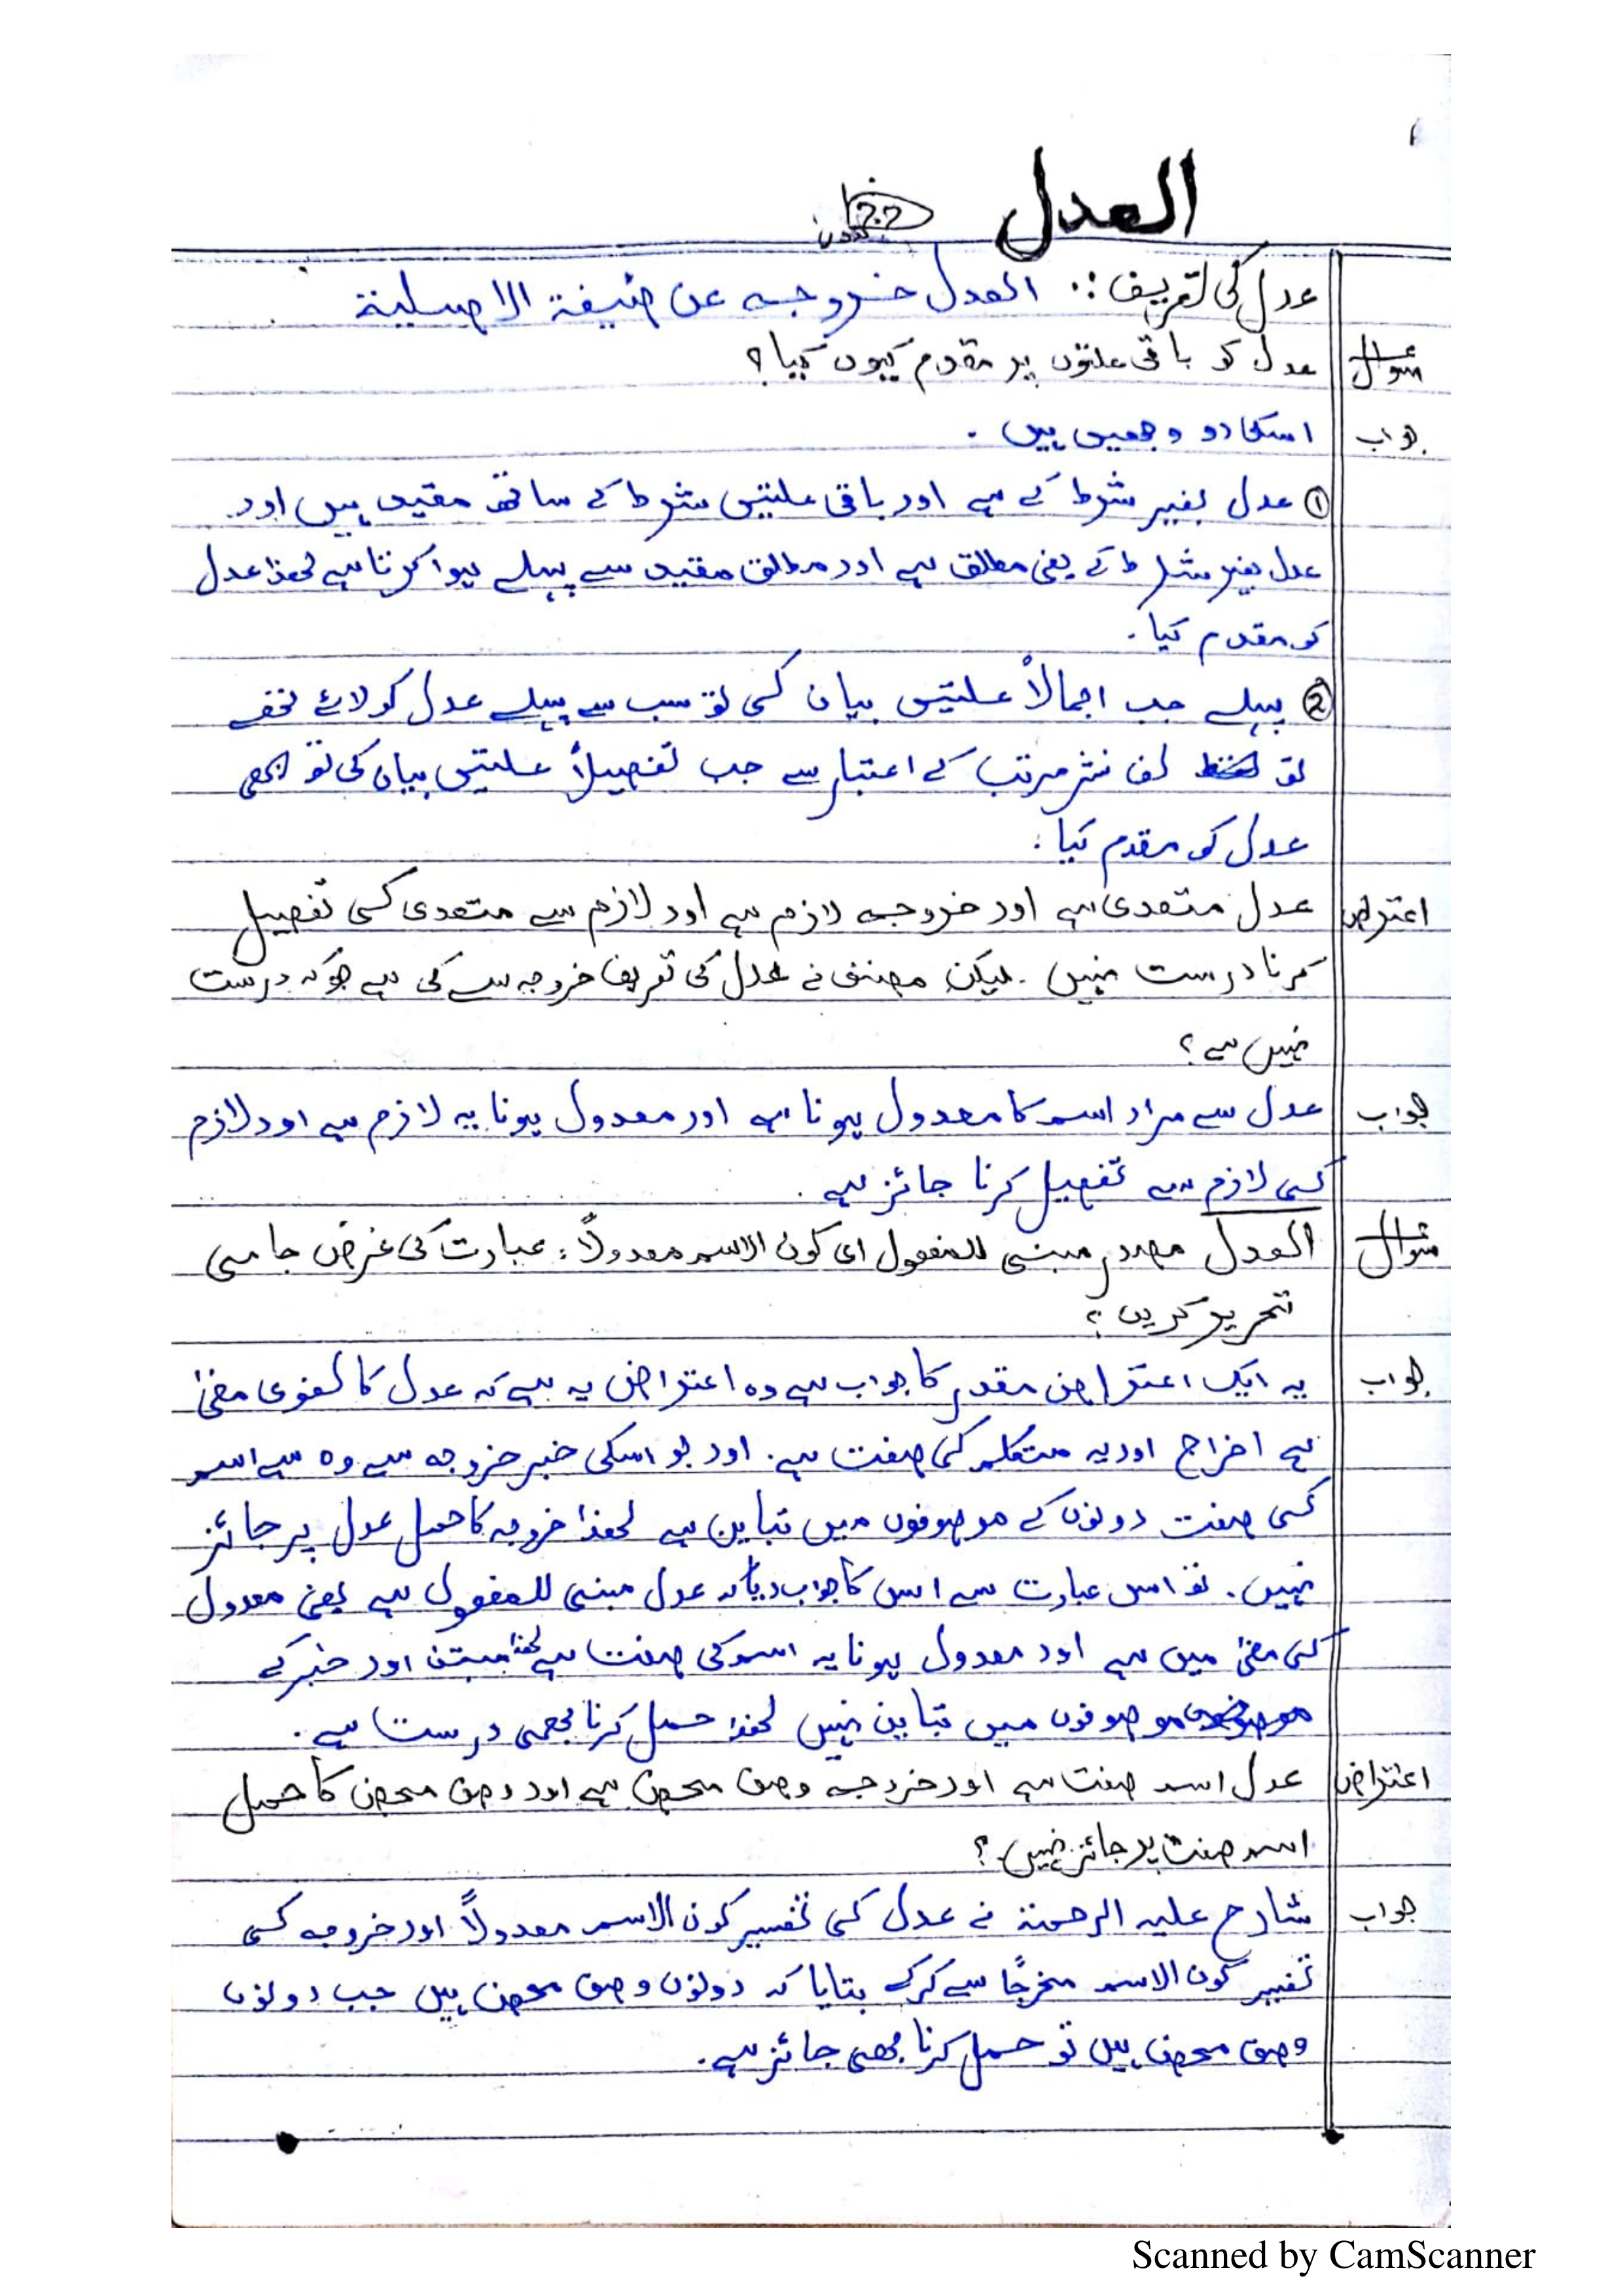 العدل
عدل کی تعریف :. العدل خروجہ عن صیغۃ الاصلیۃ
سوال عدل کو باقی علتوں پر مقدم کیوں کیا؟
جواب اسکا دو وجھیں ہیں .
① عدل بغیر شرط کے ہے اور باقی علتیں شرط کے ساتھ مقید ہیں اور
عدل بغیر شرط کے یعنی مطلق ہے اور مطلق مقید سے پہلے ہوا کرتا ہے لھذا عدل
کو مقدم کیا .
② پہلے جب اجمالاً علتیں بیان کی تو سب سے پہلے عدل کو لائے تھے
تو لف نشر مرتب کے اعتبار سے جب تفصیلاً علتیں بیان کی تو بھی
عدل کو مقدم کیا .
اعتراض عدل متعدی ہے اور خروجہ لازم ہے اور لازم سے متعدی کی تفصیل
کرنا درست نہیں . لیکن مصنف نے عدل کی تعریف خروجہ سے کی ہے جو کہ درست
نہیں ہے ؟
جواب عدل سے مراد اسم کا معدول ہونا ہے اور معدول ہونا یہ لازم ہے اور لازم
کی لازم سے تفصیل کرنا جائز ہے .
سوال العدل مصدر مبنی للمفعول ای کون الاسم معدولاً : عبارت کی غرض جامی
تحریر کریں ؟
جواب یہ ایک اعتراض مقدر کا جواب ہے وہ اعتراض یہ ہے کہ عدل کا لغوی معنیٰ
ہے اخراج اور یہ متکلم کی صفت ہے . اور جو اسکی خبر خروجہ ہے وہ ہے اسم
کی صفت دونوں کے موصوفوں میں تباین ہے لھذا خروجہ کا حمل عدل پر جائز
نہیں . تو اس عبارت سے اس کا جواب دیا کہ عدل مبنی للمفعول ہے یعنی معدول
کی معنیٰ میں ہے اور معدول ہونا یہ اسم کی صفت ہے لھذا مبتدا اور خبر کے
موصوفوں میں تباین نہیں لھذا حمل کرنا بھی درست ہے .
اعتراض عدل اسم صفت ہے اور خروجہ وصف محض ہے اور وصف محض کا حمل
اسم صفت پر جائز نہیں ؟
جواب شارح علیہ الرحمۃ نے عدل کی تفسیر کون الاسم معدولاً اور خروجہ کی
تفسیر کون الاسم مخرجًا سے کرکے بتایا کہ دونوں وصف محض ہیں جب دونوں
وصف محض ہیں تو حمل کرنا بھی جائز ہے .
Scanned by CamScanner